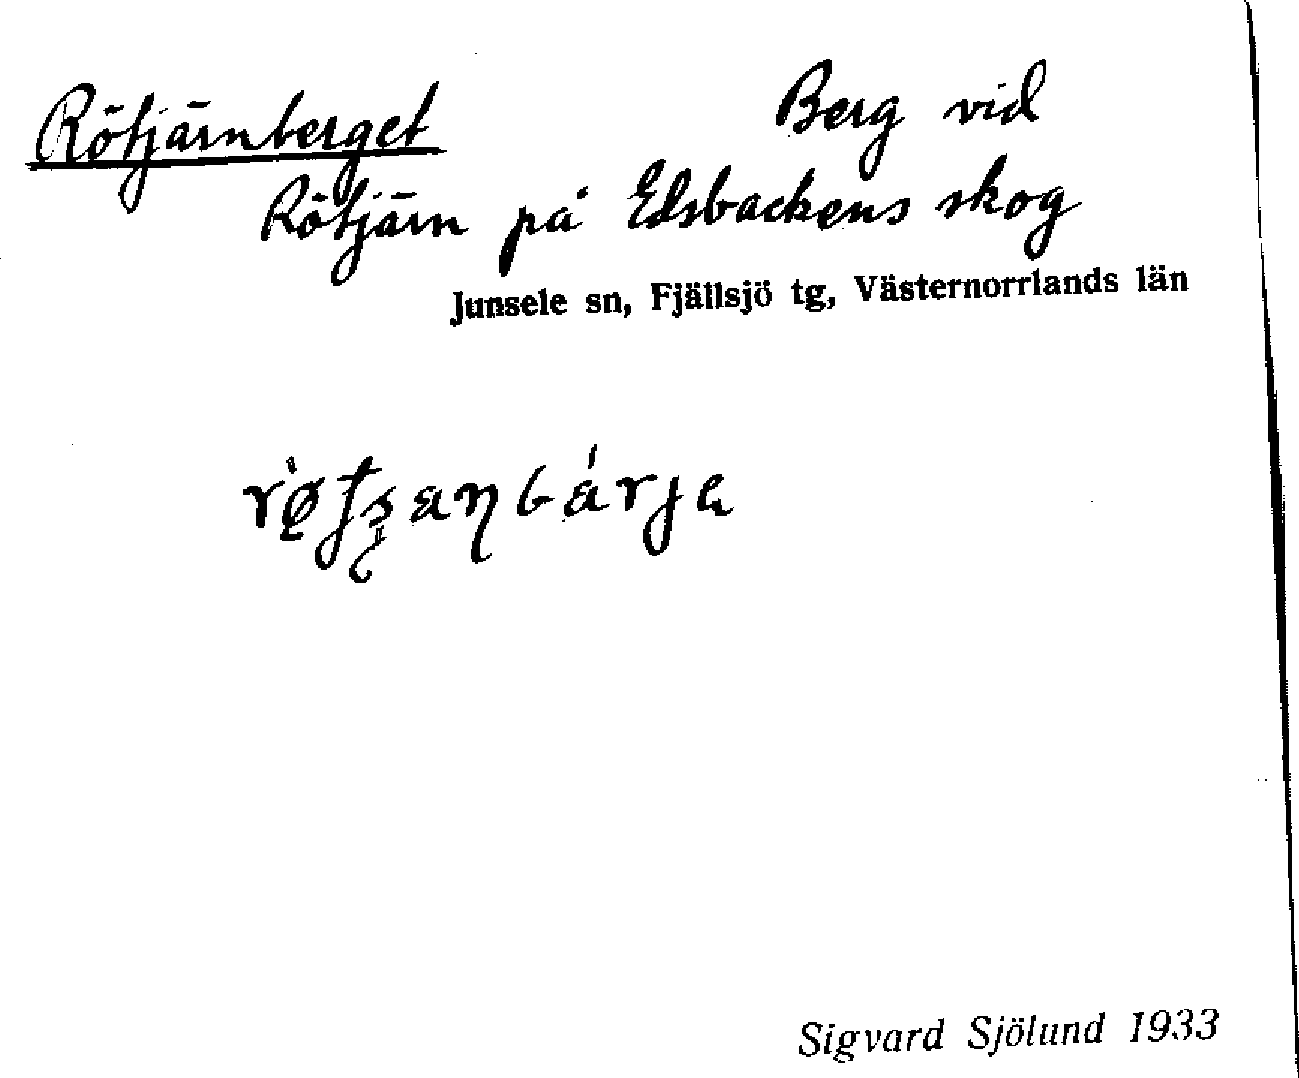 Rötjärnberget Berg vid
Rötjärn på Edsbackens skog
Junsele sn, Fjällsjö tg, Västernorrlands län
Sigvard Sjölund 1933